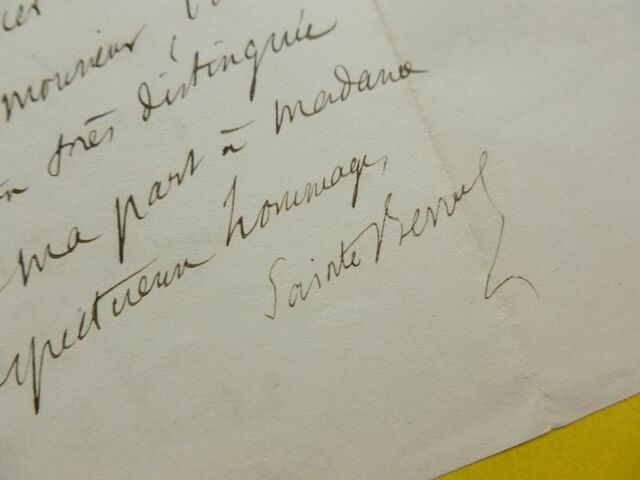 monsieur
très distinguée
ma part à madame
spectueux hommages,
Sainte Beuve